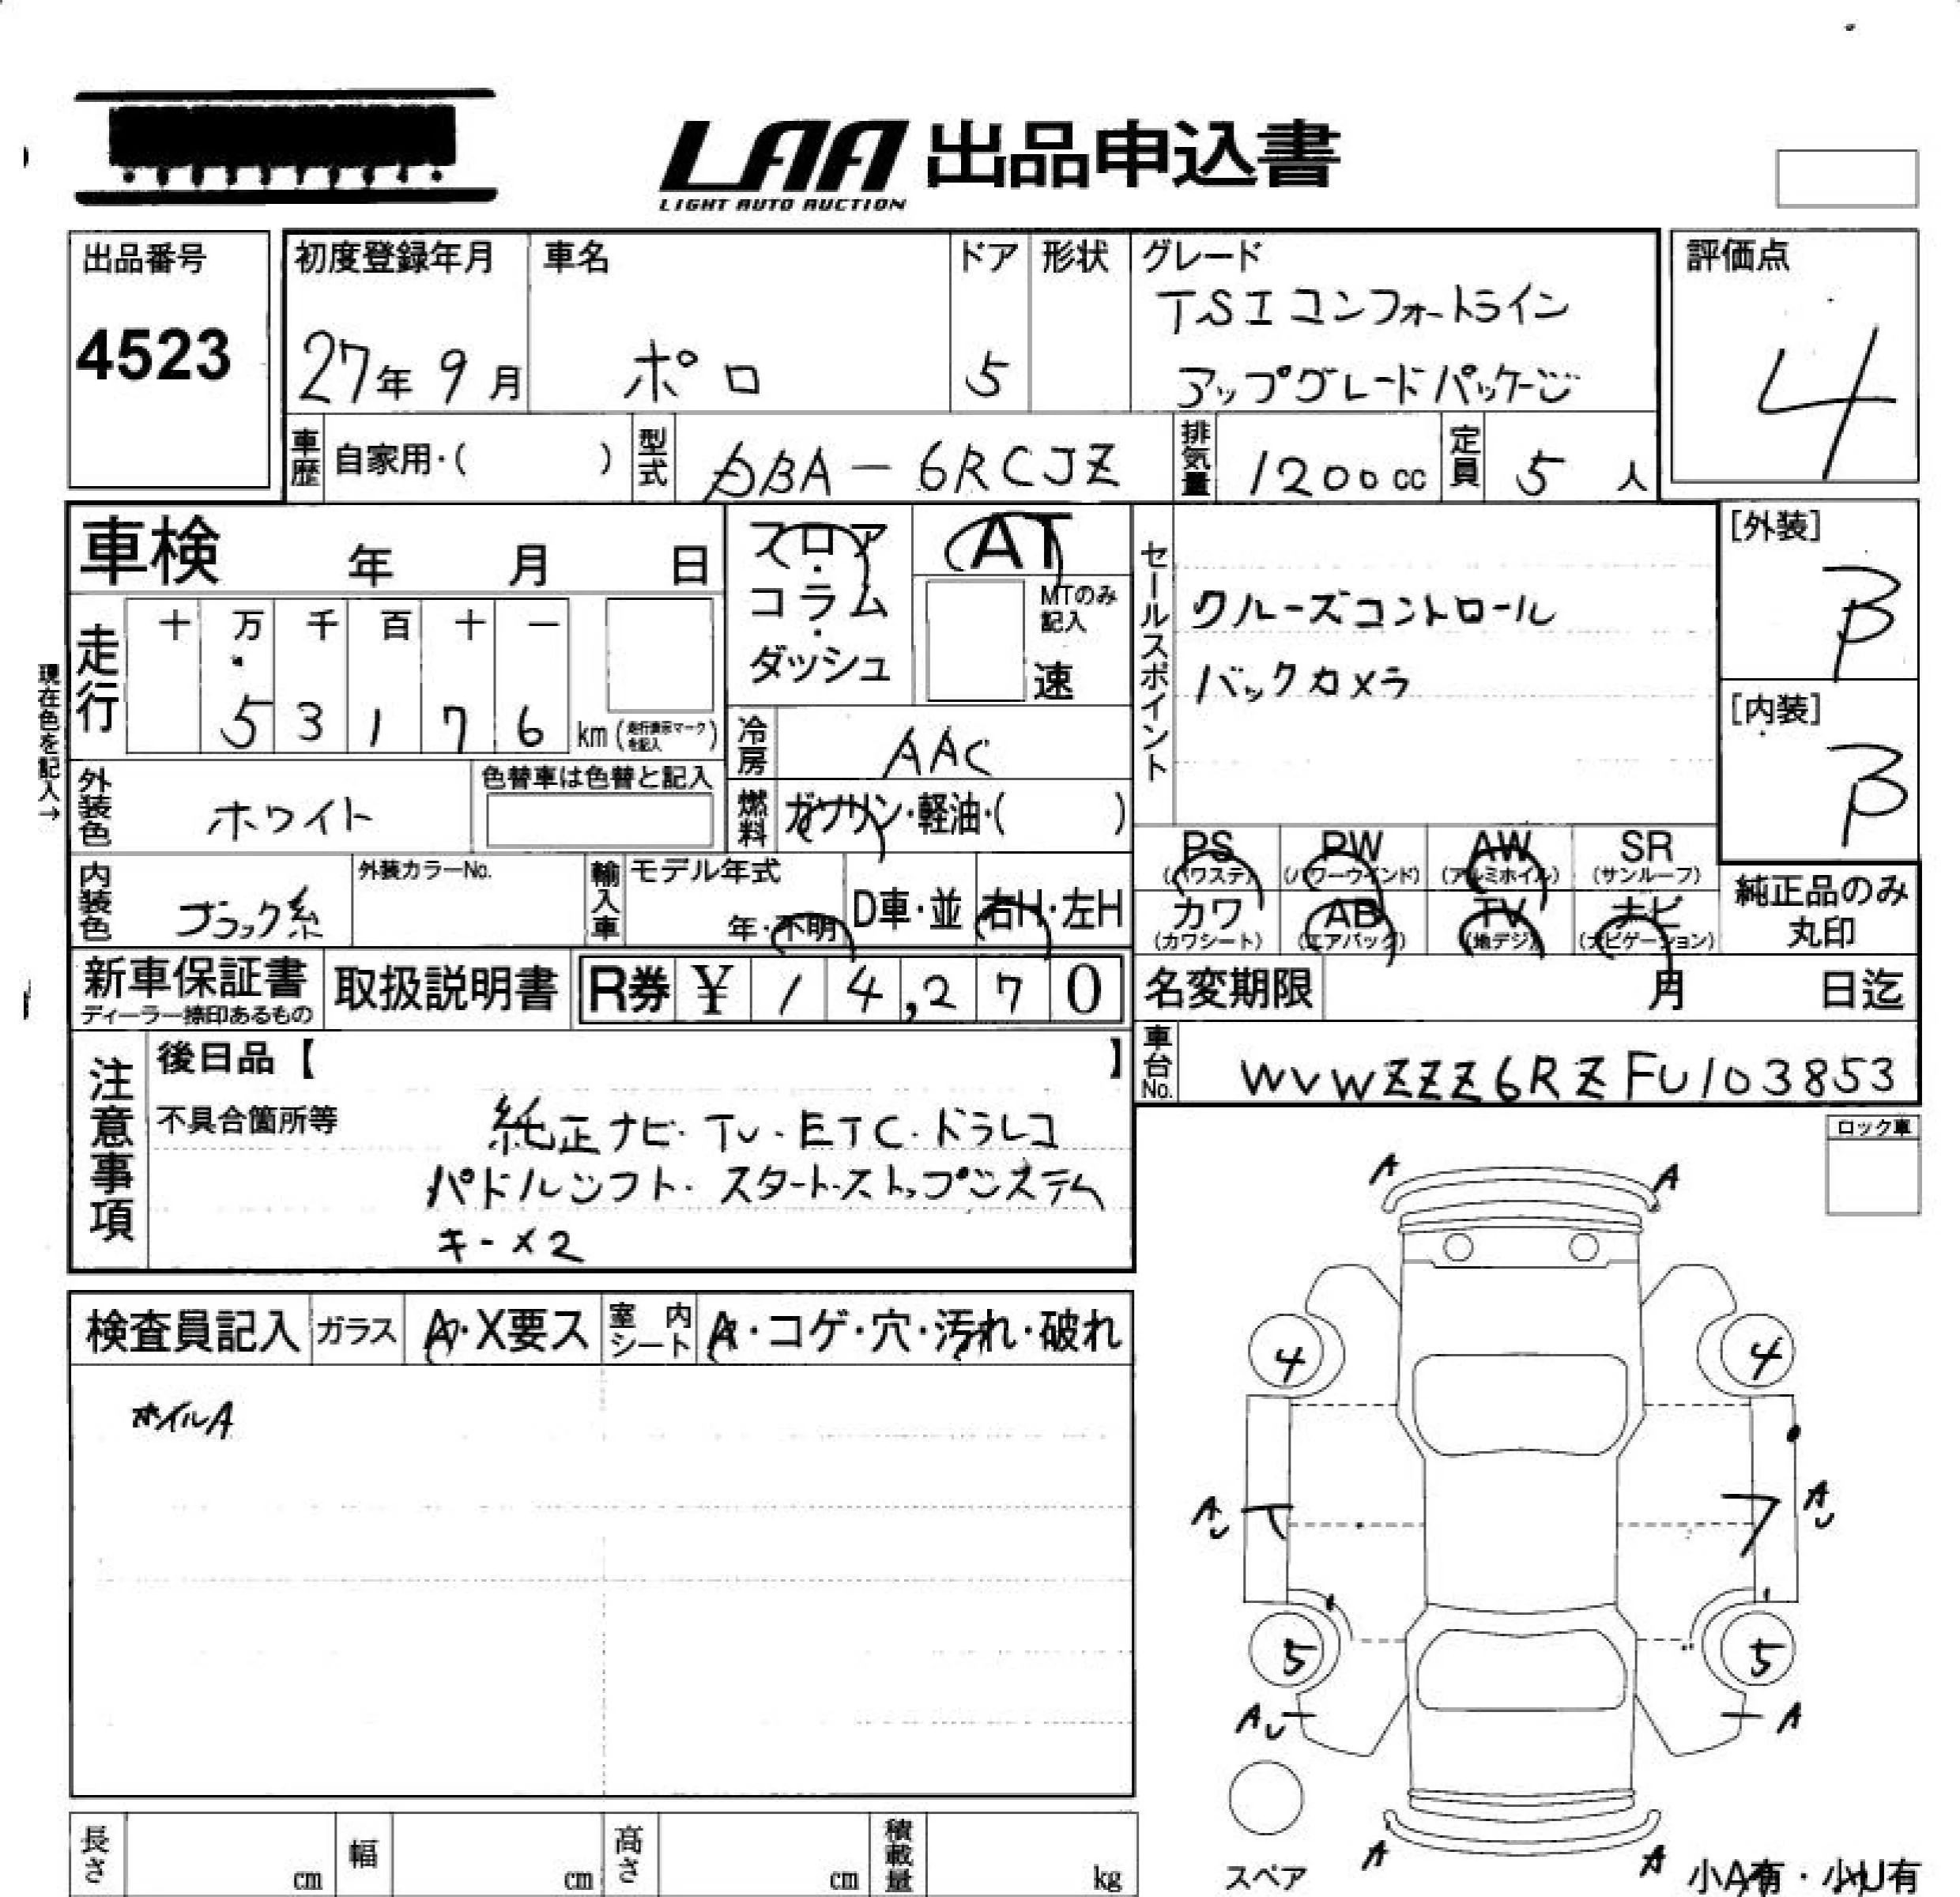 LAA 出品申込書
LIGHT AUTO AUCTION
出品番号
4523
初度登録年月
27年 9月
車名
ポロ
ドア
5
形状
グレード
TSI コンフォートライン
アップグレードパッケージ
評価点
4
車歴
自家用・( )
型式
DBA-6RCJZ
排気量
1200cc
定員
5人
車検 年 月 日
フロア・コラム・ダッシュ
AT
MTのみ記入
速
セールスポイント
クルーズコントロール
バックカメラ
[外装]
B
[内装]
B
現在色を記入→
走行
十 万 千 百 十 一
5 3 1 7 6 km(走行表示マークを記入)
冷房
AAC
外装色
ホワイト
色替車は色替と記入
燃料
ガソリン・軽油・( )
PS
(パワステ)
PW
(パワーウインド)
AW
(アルミホイル)
SR
(サンルーフ)
カワ
(カワシート)
AB
(エアバック)
TV
(地デジ)
ナビ
(ナビゲーション)
純正品のみ
丸印
内装色
ブラック系
外装カラーNo.
輸入車
モデル年式
年・不明
D車・並
右H・左H
新車保証書
ディーラー捺印あるもの
取扱説明書
R券 ¥ 14,270
名変期限 月 日迄
車台No.
WVWZZZ6RZFU103853
注意事項
後日品【 】
不具合箇所等
純正ナビ・TV・ETC・ドラレコ
パドルシフト・スタートストップシステム
キー×2
ロック車
検査員記入
ガラス
A・X要ス
室内シート
A・コゲ・穴・汚れ・破れ
ホイルA
A A
4 4
AU AU
5 5
AU A
A A
スペア
小A有・小U有
長さ cm
幅 cm
高さ cm
積載量 kg